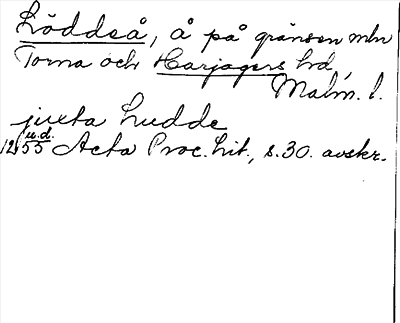 Löddså, å på gränsen mln
Torna och Harjagers hrd,
Malm. l.
juxta Ludde
u.d.
1255 Acta Proc. lit., s. 30. avskr.